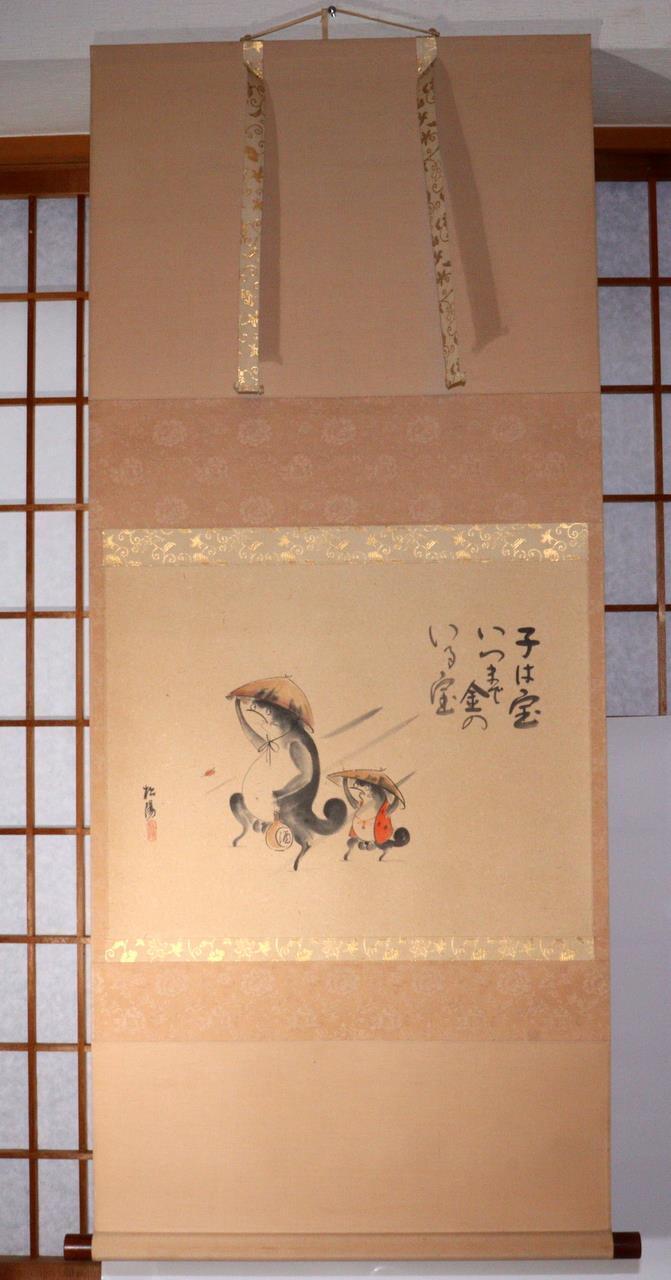 子は宝
いつまで金の
いる宝
酒
松陽